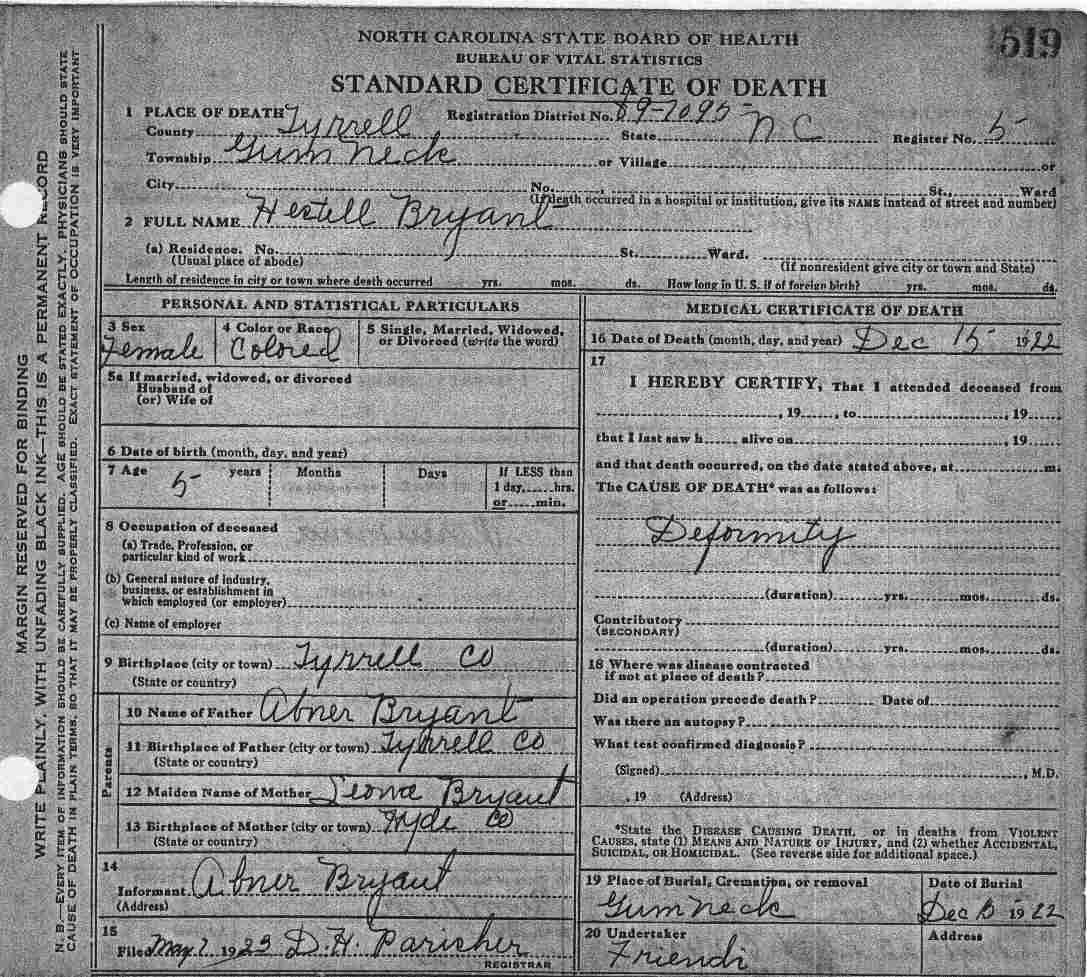 519
NORTH CAROLINA STATE BOARD OF HEALTH
BUREAU OF VITAL STATISTICS
STANDARD CERTIFICATE OF DEATH
1 PLACE OF DEATH
Registration District No. 89-7095
County Tyrrell State N C Register No. 5
Township Gum Neck or Village or
City No. St., Ward
(If death occurred in a hospital or institution, give its NAME instead of street and number)
2 FULL NAME Hestell Bryant
(a) Residence. No. St. Ward.
(Usual place of abode) (If nonresident give city or town and State)
Length of residence in city or town where death occurred yrs. mos. ds. How long in U. S. if of foreign birth? yrs. mos. ds.
PERSONAL AND STATISTICAL PARTICULARS
3 Sex
Female
4 Color or Race
Colored
5 Single, Married, Widowed,
or Divorced (write the word)
5a If married, widowed, or divorced
Husband of
(or) Wife of
6 Date of birth (month, day, and year)
7 Age 5 years Months Days
If LESS than
1 day,......hrs.
or......min.
8 Occupation of deceased
(a) Trade, Profession, or
particular kind of work
(b) General nature of industry,
business, or establishment in
which employed (or employer)
(c) Name of employer
9 Birthplace (city or town) Tyrrell Co
(State or country)
Parents
10 Name of Father Abner Bryant
11 Birthplace of Father (city or town) Tyrrell Co
(State or country)
12 Maiden Name of Mother Leona Bryant
13 Birthplace of Mother (city or town) Hyde Co
(State or country)
14
Informant Abner Bryant
(Address)
15
Filed May 7 1923 D. H. Parisher
REGISTRAR
MEDICAL CERTIFICATE OF DEATH
16 Date of Death (month, day, and year) Dec 15 1922
17
I HEREBY CERTIFY, That I attended deceased from
, 19 , to , 19
that I last saw h alive on , 19
and that death occurred, on the date stated above, at m.
The CAUSE OF DEATH* was as follows:
Deformity
(duration) yrs. mos. ds.
Contributory
(SECONDARY)
(duration) yrs. mos. ds.
18 Where was disease contracted
if not at place of death?
Did an operation precede death? Date of
Was there an autopsy?
What test confirmed diagnosis?
(Signed) , M.D.
, 19 (Address)
*State the DISEASE CAUSING DEATH, or in deaths from VIOLENT
CAUSES, state (1) MEANS AND NATURE OF INJURY, and (2) whether ACCIDENTAL,
SUICIDAL, OR HOMICIDAL. (See reverse side for additional space.)
19 Place of Burial, Cremation, or removal
Gum neck
Date of Burial
Dec 1922
20 Undertaker
Friends
Address
MARGIN RESERVED FOR BINDING
WRITE PLAINLY, WITH UNFADING BLACK INK—THIS IS A PERMANENT RECORD
N. B.—EVERY ITEM OF INFORMATION SHOULD BE CAREFULLY SUPPLIED. AGE SHOULD BE STATED EXACTLY. PHYSICIANS SHOULD STATE
CAUSE OF DEATH IN PLAIN TERMS, SO THAT IT MAY BE PROPERLY CLASSIFIED. EXACT STATEMENT OF OCCUPATION IS VERY IMPORTANT